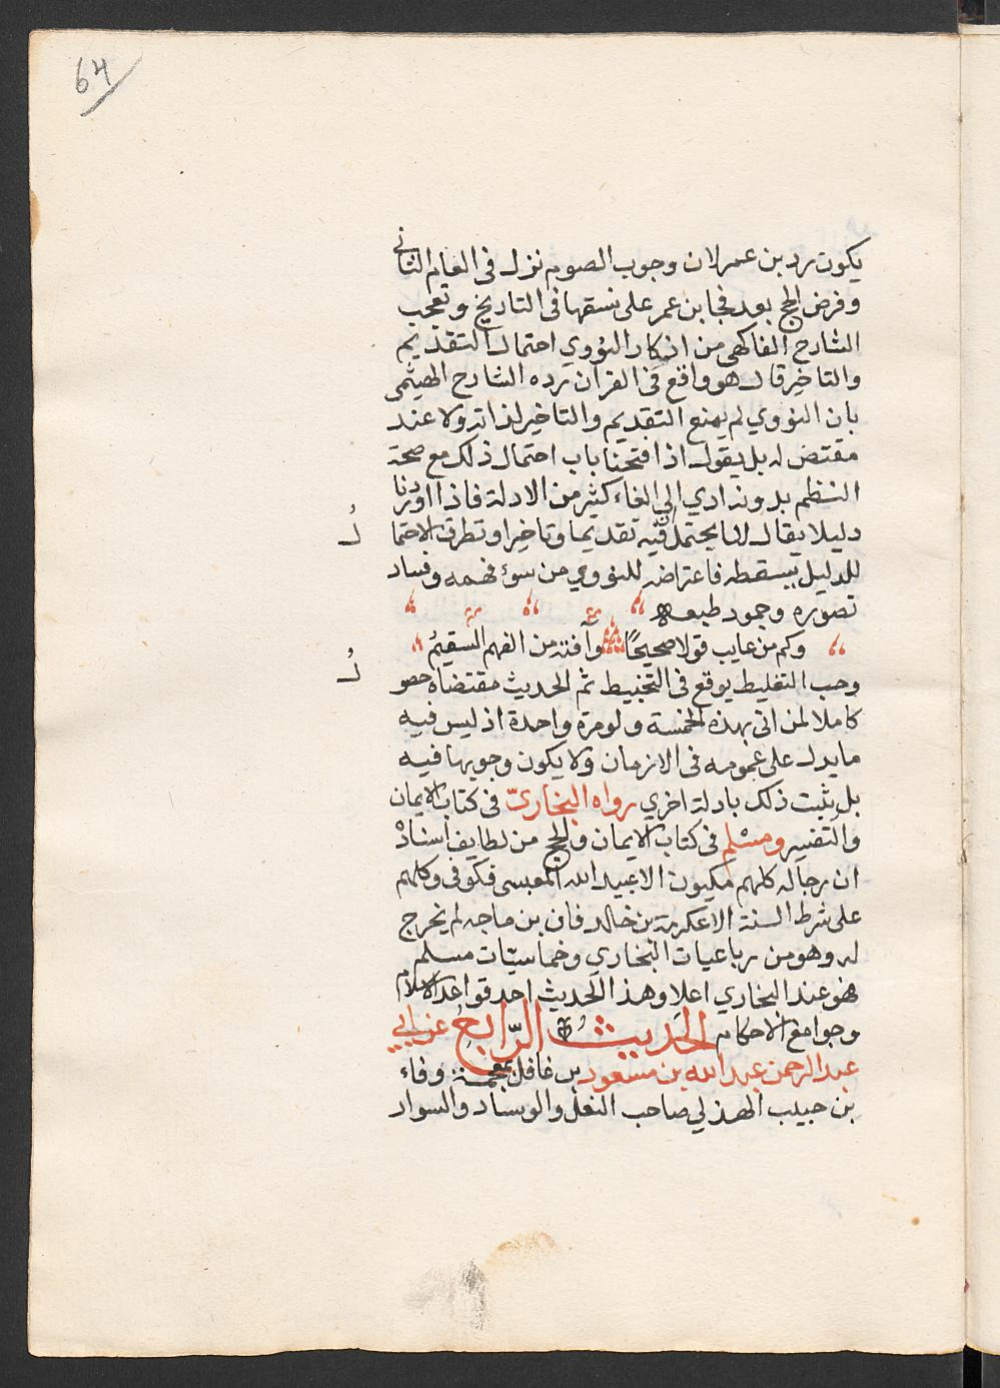 64
يكون رد بن عمر لان وجوب الصوم نزل في العام الثاني
وفرض الحج بعد فجا بن عمر على نسقها في التاريخ وتعجب
الشارح الفاكهي من انكار النووي احتمال التقديم
والتاخير قال هو واقع في القران رده الشارح الهيثمي
بان النووي لم يمنع التقديم والتاخير لذاته ولا عند
مقتض له بل يقول اذا فتحنا باب احتمال ذلك مع صحة
النظم بدونه ادي الي الغاء كثير من الادلة فاذا اوردنا
دليلا يقال لنا يحتمل فيه تقديما وتاخيرا وتطرق الاحتما
ل
للدليل يسقطه فاعتراضه للنووي من سوء فهمه وفساد
تصوره وجمود طبعه
وكم من عايب قولا صحيحًا وآفته من الفهم السقيمُ
وحب التغليط يوقع في التخبيط ثم الحديث مقتضاه حصو
ل
كاملا لمن اتى بهذه الخمسة ولو مرة واحدة اذ ليس فيه
مايدل على عمومه في الازمان ولا يكون وجوبها فيه
بل يثبت ذلك بادلة اخري رواه البخاريّ في كتاب الايمان
والتفسير ومسلم في كتاب الايمان والحج من لطايف اسناده
ان رجاله كلهم مكيون الا عبيد الله العبسي فكوفي وكلهم
على شرط الستة الا عكرمة بن خالد فان بن ماجه لم يخرج
له وهو من رباعيات البخاري وخماسيّات مسلم
فهو عند البخاري اعلا وهذا الحديث احد قواعد الاسلام
وجوامع الاحكام الحديثُ الرّابعُ عن ابي
عبد الرحمن عبد الله بن مسعود بن غافل بمعجمة وفاء
بن حبيب الهذلي صاحب النعل والوساد والسوار